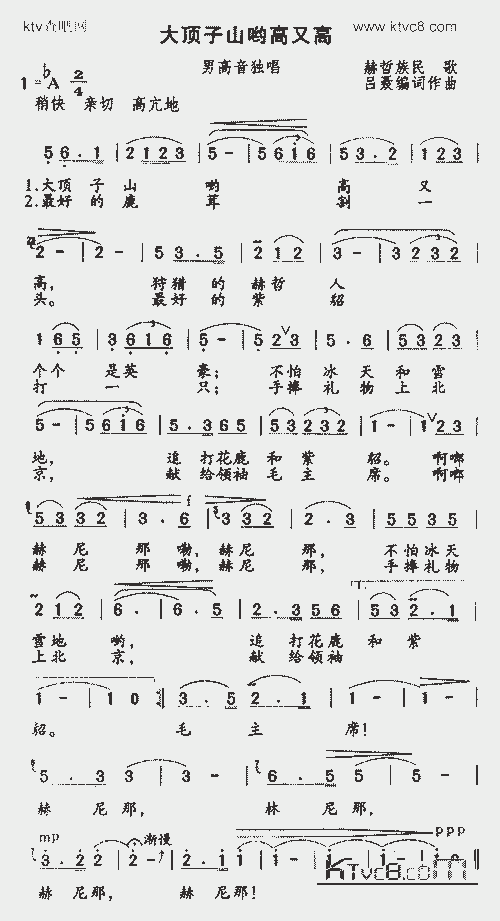 ktv酷吧网
www.ktvc8.com
大顶子山哟高又高
男高音独唱
赫哲族民 歌
吕聂编词作曲
1=bA 2/4
稍快 亲切 高亢地
5 6 . 1 | 2 1 2 3 | 5 - | 5 6 1 6 | 5 3 . 2 | 1 2 3 |
1.大顶 子 山 哟 高 又
2.最好 的 鹿 茸 割 一
2 - | 2 - | 5 3 . 5 | 2 1 2 | 3 - | 3 2 3 2 |
高, 狩猎 的 赫哲 人
头。 最好 的 紫 貂
1 6 5 | 3 6 1 6 | 5 - | 5 2 3 | 5 . 6 | 5 3 2 3 |
个个 是英 豪; 不怕 冰 天 和 雪
打 一 只; 手捧 礼 物 上 北
5 - | 5 6 1 6 | 5 . 3 6 5 | 5 3 2 3 2 | 1 - | 1 2 3 |
地, 追 打花鹿 和 紫 貂。 啊啷
京, 献 给领袖 毛 主 席。 啊啷
5 3 3 2 | 3 . 6 | 3 3 2 | 2 . 3 | 5 5 3 5 |
f
赫 尼 那 嘞, 赫尼 那, 不怕冰天
赫 尼 那 嘞, 赫尼 那, 手捧礼物
1.
2 1 2 | 6 . | 6 . 5 | 2 . 3 5 6 | 5 3 2 . 1 |
雪地 哟, 追 打花鹿 和 紫
上北 京, 献 给领袖
1 - | 1 0 :| 3 . 5 | 2 . 1 | 1 - | 1 - |
貂。 毛 主 席!
5 . 3 | 3 - | 3 - | 6 . 5 | 5 - | 5 - |
赫 尼 那, 赫 尼 那,
mp 渐慢 ppp
3 . 2 2 | 2 - | 2 . 1 | 1 - | 1 - | 1 - | 1 - ‖
赫 尼那, 赫 尼那!
KTvc8.com